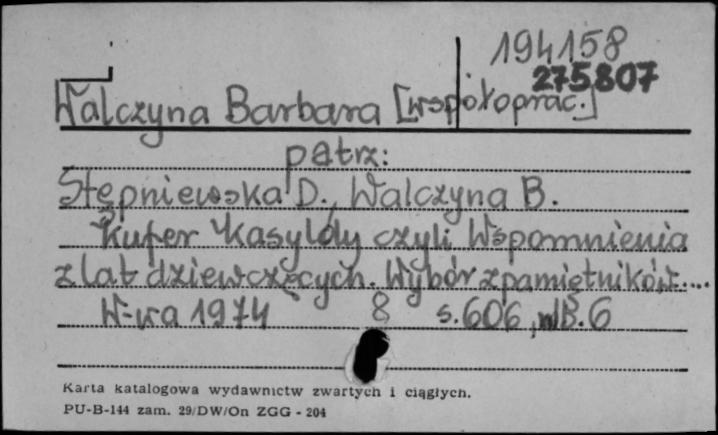 194158
275807
Walczyna Barbara [współoprac.]
patrz:
Stępniewska D., Walczyna B.
Kufer Kasyldy czyli Wspomnienia
z lat dziewczęcych. Wybór z pamiętników....
W-wa 1974 8 s. 606, nlb. 6
Karta katalogowa wydawnictw zwartych i ciągłych.
PU-B-144 zam. 29/DW/On ZGG - 204